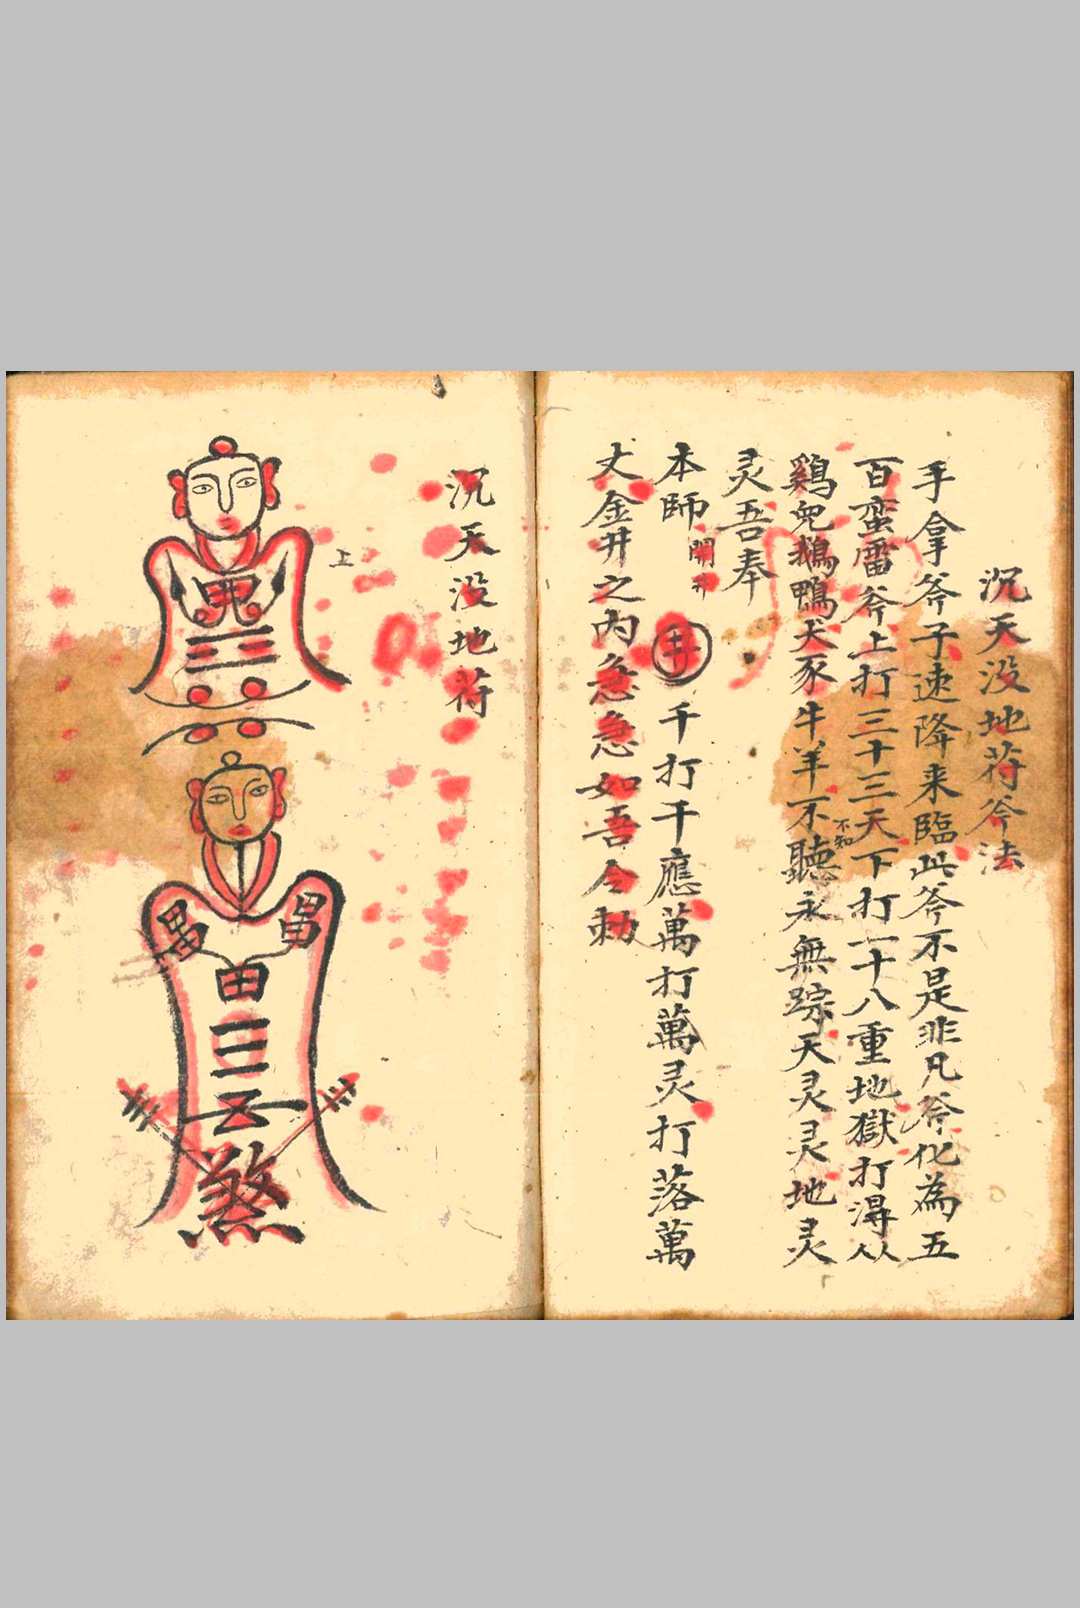 沉天没地符斧法
手拿斧子速降来臨此斧不是非凡斧化為五
百蛮雷斧上打三十三天下打一十八重地獄打潯从
鷄兒鵝鴨犬豕牛羊不聽永無踪天灵灵地灵
不知
灵吾奉
本師開井 千打千應萬打萬灵打落萬
丈金井之内急急如吾令勅
沉天没地符
上
田
三
煞